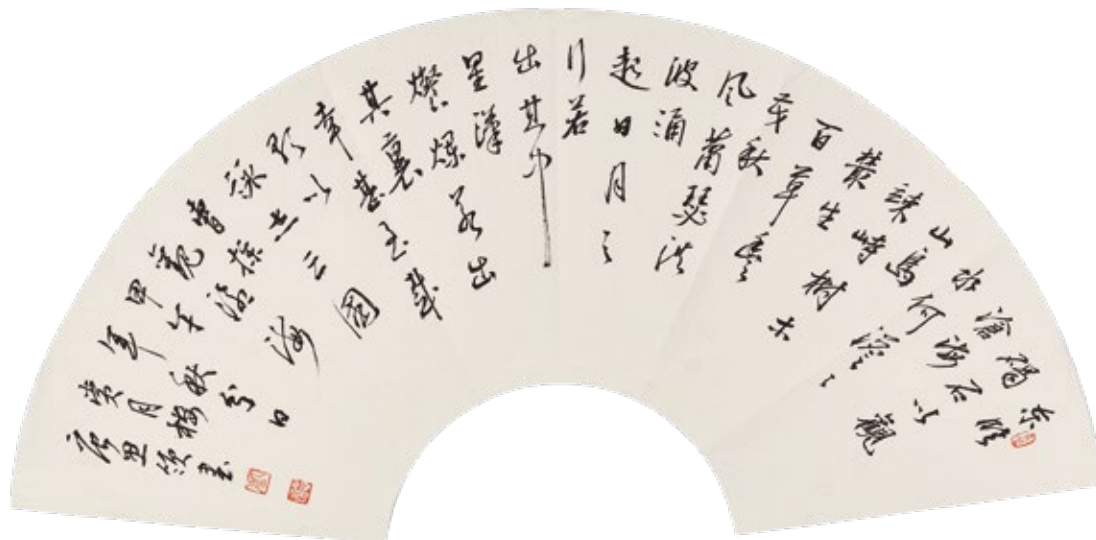 东臨
碣石以觀
滄海
水何澹ミ
山島
竦峙樹木
叢生
百草豐
茂秋
風蕭瑟洪
波涌
起日月之
行若
出其中
星漢
燦爛若出
其裏
幸甚至哉
歌以
詠志三國
曹操
觀滄海
甲午秋
年月
書